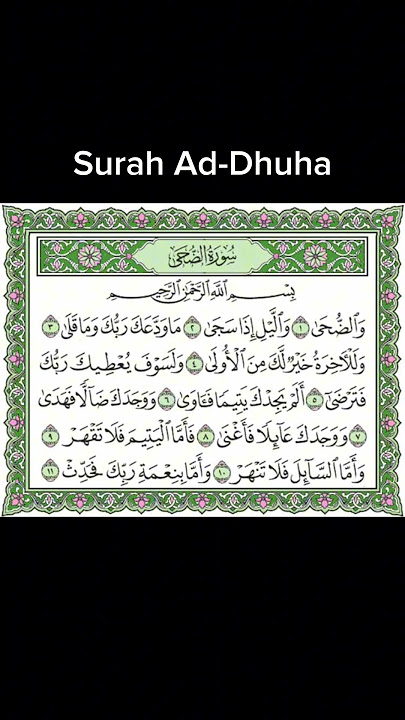 Surah Ad-Dhuha
سُورَةُ الضُّحَىٰ
بِسْمِ اللَّهِ الرَّحْمَٰنِ الرَّحِيمِ
وَٱلضُّحَىٰ ١ وَٱلَّيْلِ إِذَا سَجَىٰ ٢ مَا وَدَّعَكَ رَبُّكَ وَمَا قَلَىٰ ٣
وَلَلْءَاخِرَةُ خَيْرٌ لَّكَ مِنَ ٱلْأُولَىٰ ٤ وَلَسَوْفَ يُعْطِيكَ رَبُّكَ
فَتَرْضَىٰٓ ٥ أَلَمْ يَجِدْكَ يَتِيمًا فَـَٔاوَىٰ ٦ وَوَجَدَكَ ضَآلًّا فَهَدَىٰ
٧ وَوَجَدَكَ عَآئِلًا فَأَغْنَىٰ ٨ فَأَمَّا ٱلْيَتِيمَ فَلَا تَقْهَرْ ٩
وَأَمَّا ٱلسَّآئِلَ فَلَا تَنْهَرْ ١٠ وَأَمَّا بِنِعْمَةِ رَبِّكَ فَحَدِّثْ ١١